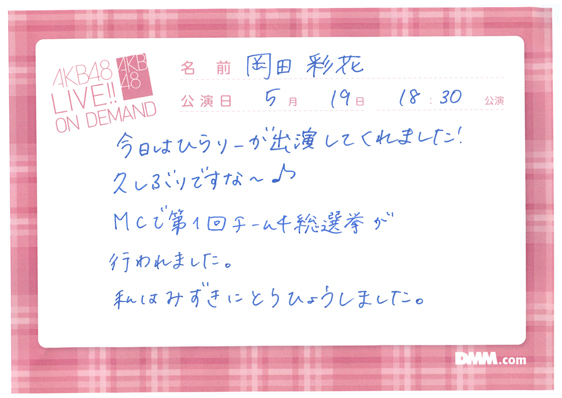 AKB48
LIVE!!
ON DEMAND
AKB
48
名前 岡田彩花
公演日 5月 19日 18:30 公演
今日はひらりーが出演してくれました!
久しぶりですな〜♪
MCで第1回チーム4総選挙が
行われました。
私はみずきにとうひょうしました。
DMM.com